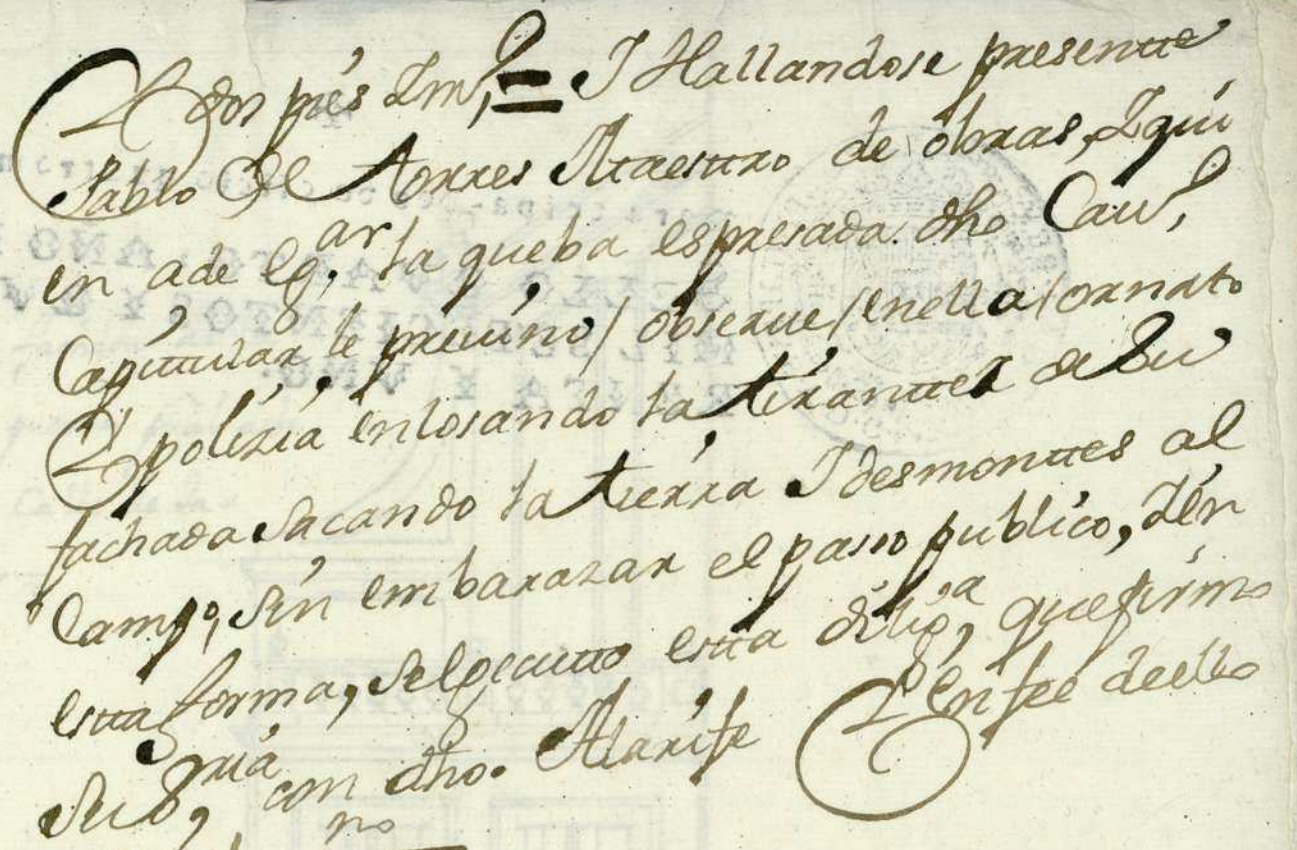 dos pies Lin.^o = I Hallandose presentte
Pablo de Torres Maesttro de obras, Iqui
en a de eg.^ar la queba espresada. dho Cav.^o
Capittular le preuino / obserue / enella / ornato
I polizia enlosando la tiranttez de Su
fachada Sacando la tierra I desmonttes al
Camp.^o, Sin embarazar el passo publico, I en
estta forma, Se egecutto estta dilig.^a, que firmo
Su S.^ria con dho. Alarife I^o en fee deello
no